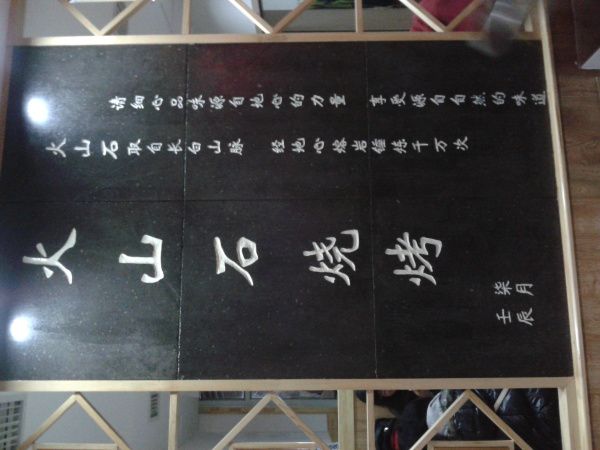 火山石烧烤
火山石取自长白山脉 经地心熔岩锤炼千万次
请细心品味源自地心的力量 享受源自自然的味道
壬辰
柒月